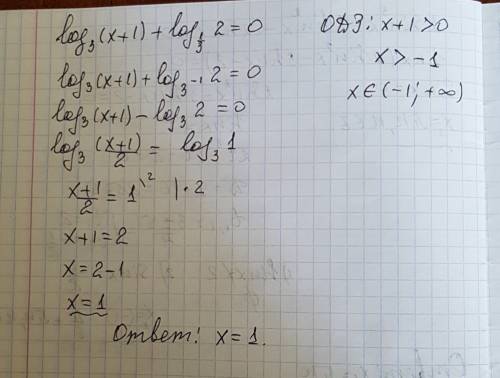 log₃(x+1) + log_⅓ 2 = 0
log₃(x+1) + log₃₋₁ 2 = 0
log₃(x+1) - log₃ 2 = 0
log₃ (x+1)/2 = log₃ 1
x+1/2 = 1\² | · 2
x+1 = 2
x = 2-1
x = 1
Ответ: x = 1.
ОДЗ: x+1 > 0
x > -1
x ∈ (-1; +∞)